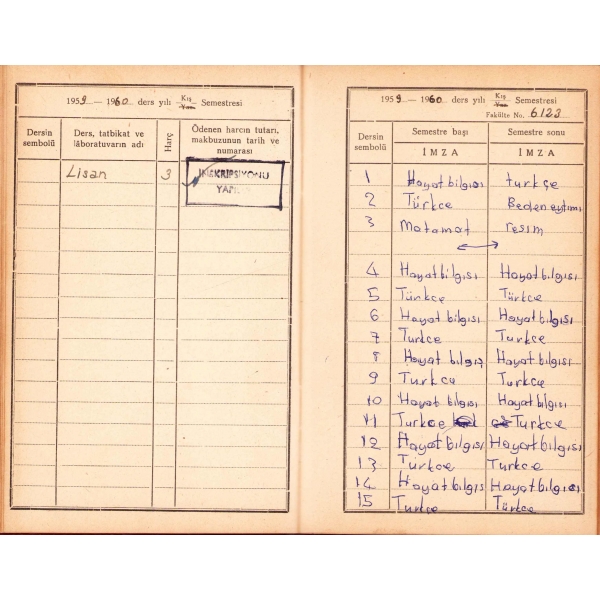 1959 — 1960 ders yılı Kış Semestresi
Yaz
Dersin sembolü
Ders, tatbikat ve lâboratuvarın adı
Harç
Ödenen harcın tutarı, makbuzunun tarih ve numarası
Lisan 3 İNSKRİPSİYONU
YAPILDI
1959 — 1960 ders yılı Kış Semestresi
Yaz
Fakülte No. 6123
Dersin sembolü
Semestre başı
İMZA
Semestre sonu
İMZA
1 Hayat bilgisi turkçe
2 Türkce Beden eytimi
3 Matamat resim
4 Hayat bilgısı Hayat bilgısı
5 Türkce Türkce
6 Hayat bilgısı Hayat bilgısı
7 Turkce Turkce
8 Hayat bilgıs Hayat bilgısı
9 Turkca Turkce
10 Hayat bilgısi Hayat bilgısı
11 Turkce Turkce
12 Hayat bilgısı Hayat bilgısı
13 Türkce Turkce
14 Hayat bilgısı Hayat bilgısı
15 Turkce Türkce